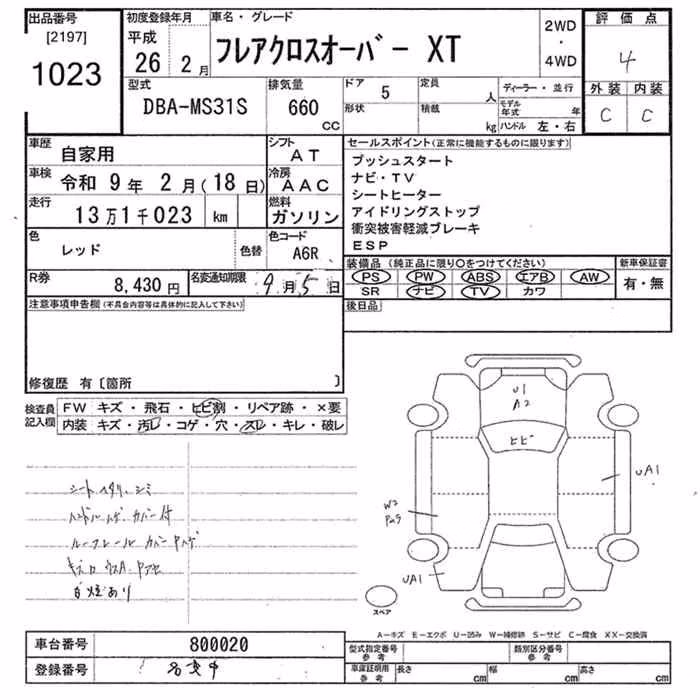 出品番号
[2197]
1023
初度登録年月
平成
26 2月
車名・グレード
フレアクロスオーバー XT
2WD
・
4WD
評価点
4
外装 内装
C C
型式
DBA-MS31S
排気量
660
cc
ドア 5
形状
定員 人
積載 kg
ディーラー・並行
モデル年式 年
ハンドル 左・右
車歴 自家用
シフト AT
車検 令和 9年 2月(18日)
冷房 AAC
走行 13万1千023 km
燃料 ガソリン
色 レッド
色替
色コード A6R
R券 8,430円
名変通知期限 9月5日
セールスポイント(正常に機能するものに限ります)
プッシュスタート
ナビ・TV
シートヒーター
アイドリングストップ
衝突被害軽減ブレーキ
ESP
装備品(純正品に限り○をつけてください)
PS PW ABS エアB AW
SR ナビ TV カワ
新車保証書
有・無
後日品
注意事項申告欄(不具合内容等は具体的に記入して下さい)
修復歴 有〔箇所 〕
検査員記入欄
FW キズ・飛石・ヒビ割・リペア跡・×要
内装 キズ・汚レ・コゲ・穴・スレ・キレ・破レ
シートヘタリ、シミ
ハンドルハゲ、カバー付
ルーフレールカバーハゲ
U1
A2
ヒビ
UA1
W2
UA1
スペア
A-キズ E-エクボ U-凹み W-補修跡 S-サビ C-腐食 XX-交換済
車台番号 800020
登録番号 名変中
型式指定番号
参考
類別区分番号
参考
車庫証明用
参考
長さ cm 幅 cm 高さ cm